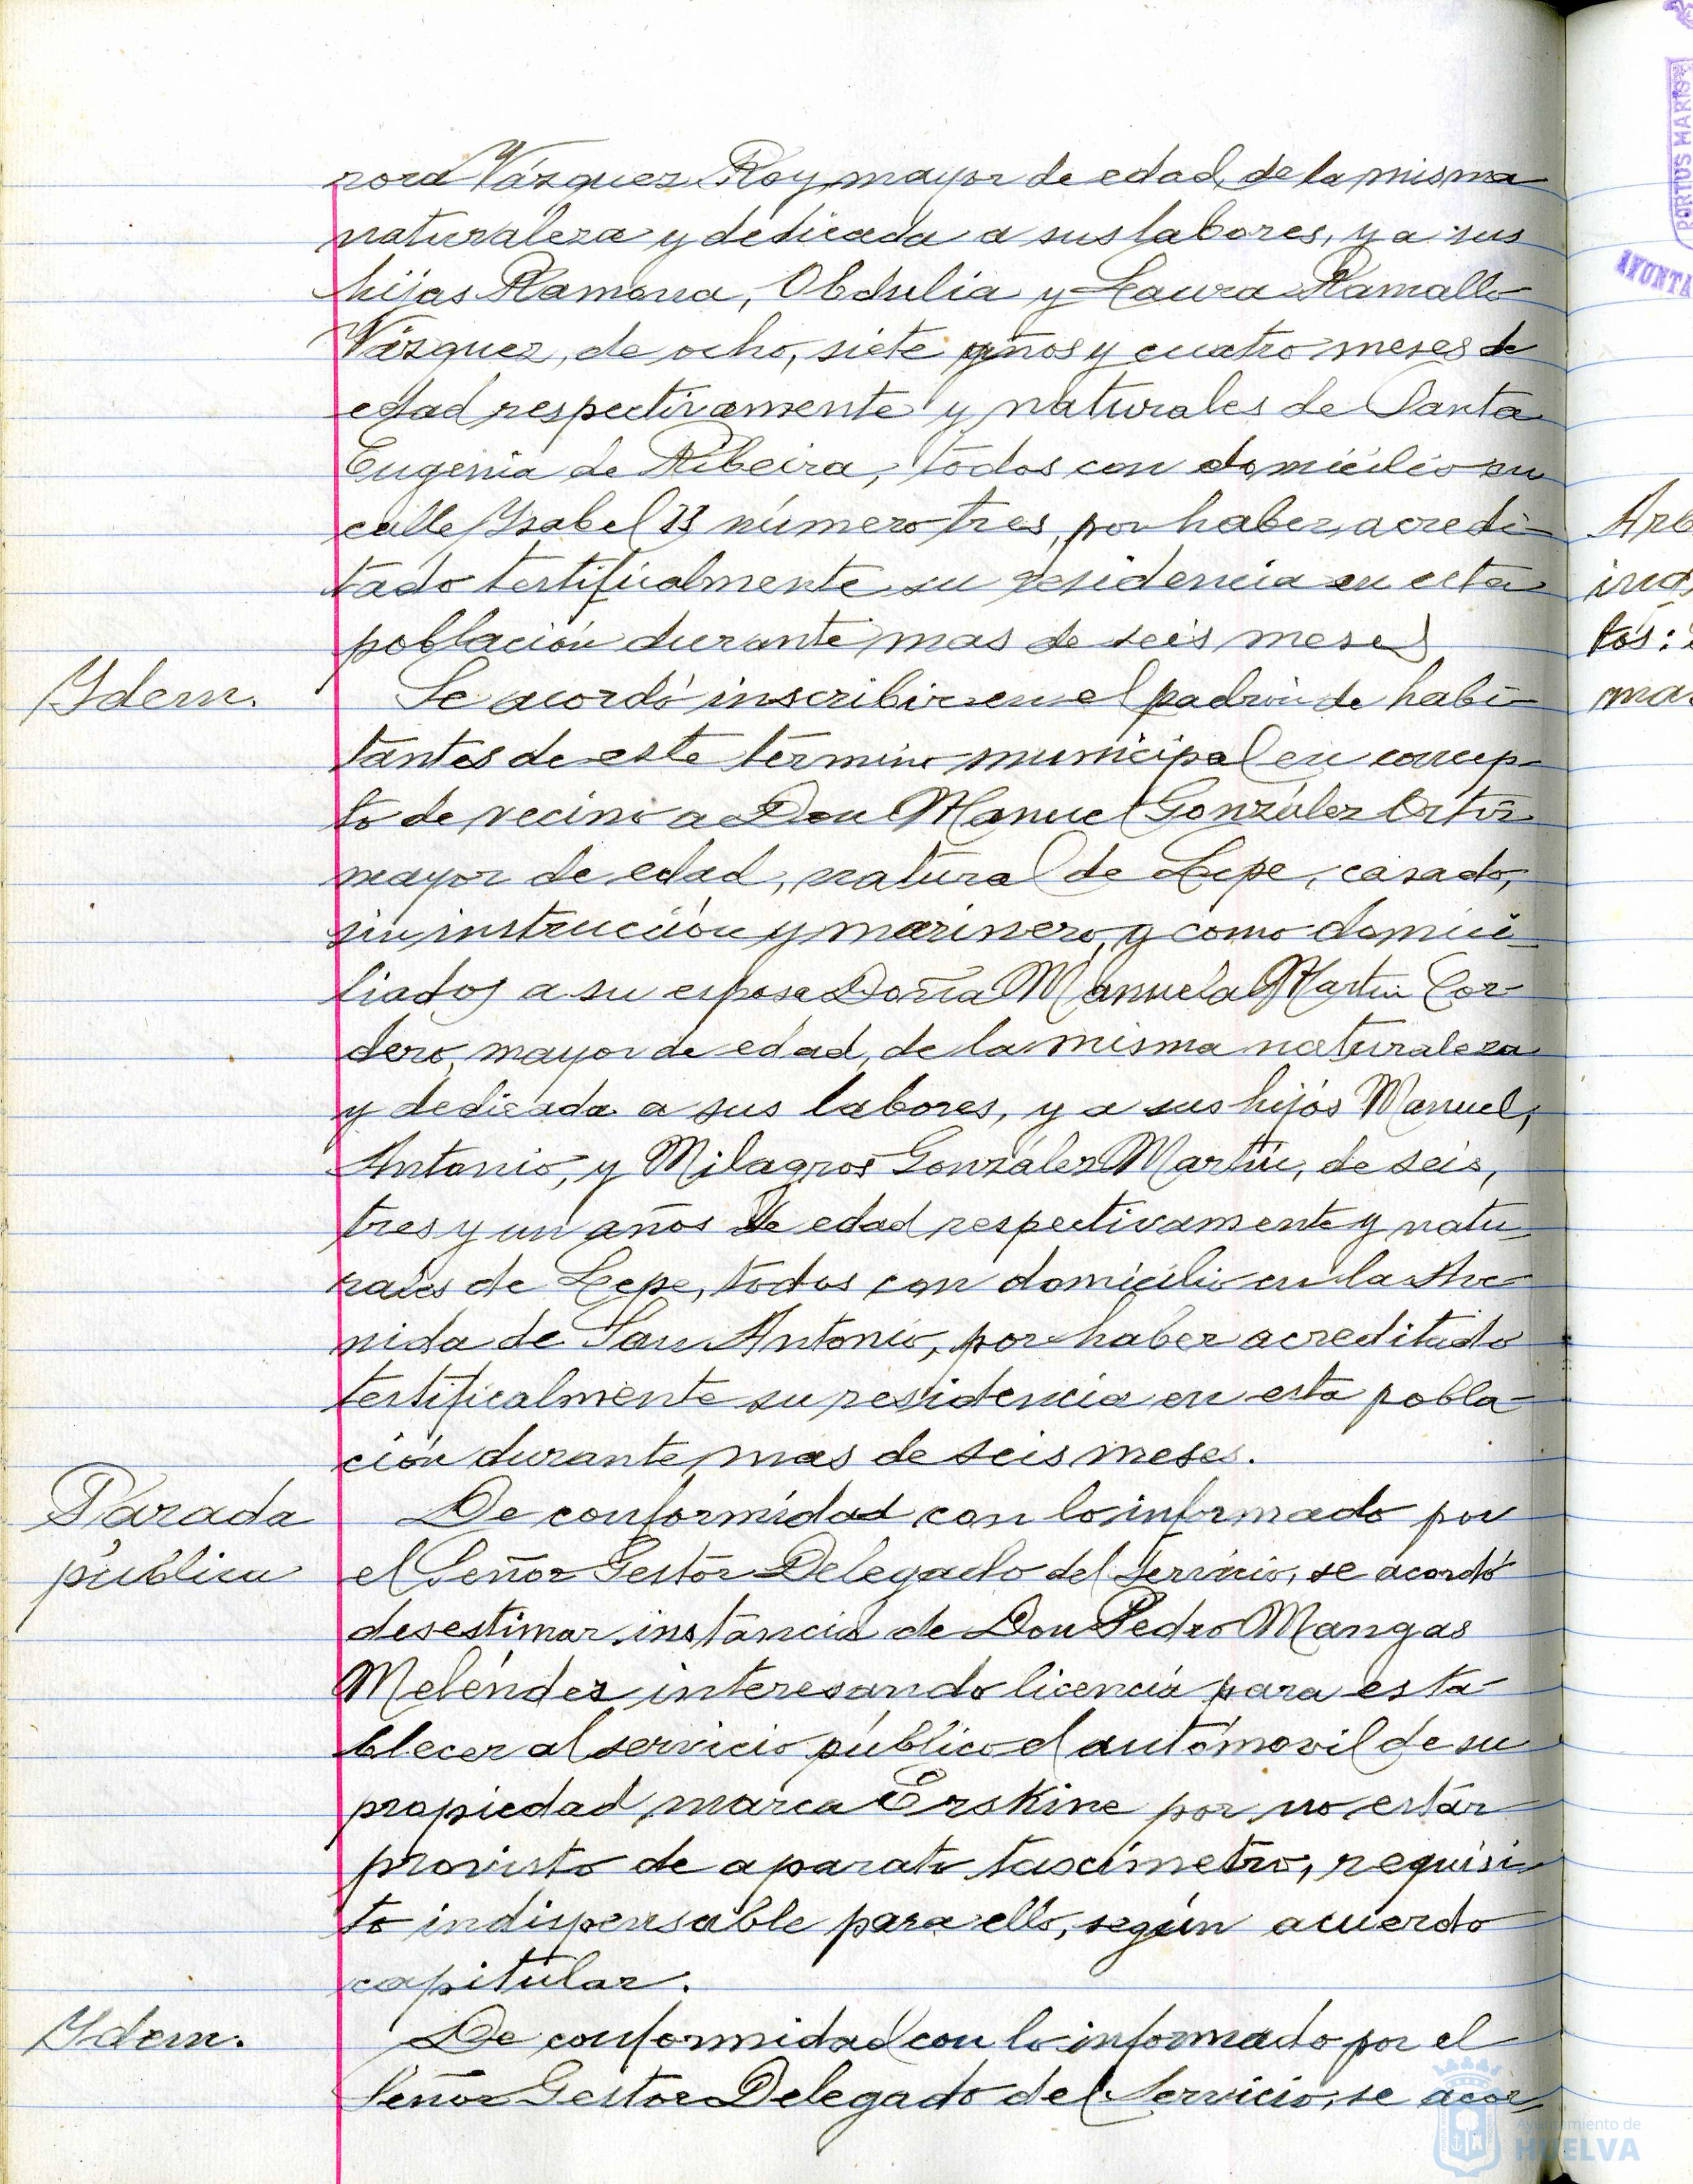 nora Vázquez Roy, mayor de edad, de la misma
naturaleza y dedicada a sus labores, y a sus
hijas Ramona, Obdulia y Laura Ramallo
Vázquez, de ocho, siete años y cuatro meses de
edad respectivamente y naturales de Santa
Eugenia de Ribeira, todos con domicilio en
calle Ysabel II número tres, por haber acredi-
tado testifícalmente su residencia en esta
población durante mas de seis meses
Ydem.
Se acordó inscribir en el padrón de habi-
tantes de este término municipal en concep-
to de vecino a Don Manuel González
mayor de edad, natural de Lepe, casado,
sin instrucción y marinero, y como domici-
liados a su esposa Doña Manuela Martín Cor-
dero, mayor de edad, de la misma naturaleza
y dedicada a sus labores, y a sus hijos Manuel,
Antonio, y Milagros González Martín, de seis,
tres y un años de edad respectivamente y natu-
rales de Lepe, todos con domicilio en la Ave-
nida de San Antonio, por haber acreditado
testifícalmente su residencia en esta pobla-
ción durante mas de seis meses.
Parada
pública
De conformidad con lo informado por
el Señor Gestor Delegado del Servicio, se acordó
desestimar instancia de Don Pedro Mangas
Meléndez interesando licencia para esta-
blecer al servicio público el automóvil de su
propiedad marca Erskine por no estar
provisto de aparato taxímetro, requisi-
to indispensable para ello, según acuerdo
capitular.
Ydem.
De conformidad con lo informado por el
Señor Gestor Delegado del Servicio, se acor-
PORTUS MARIS
AYUNTA
Ayuntamiento de
HUELVA